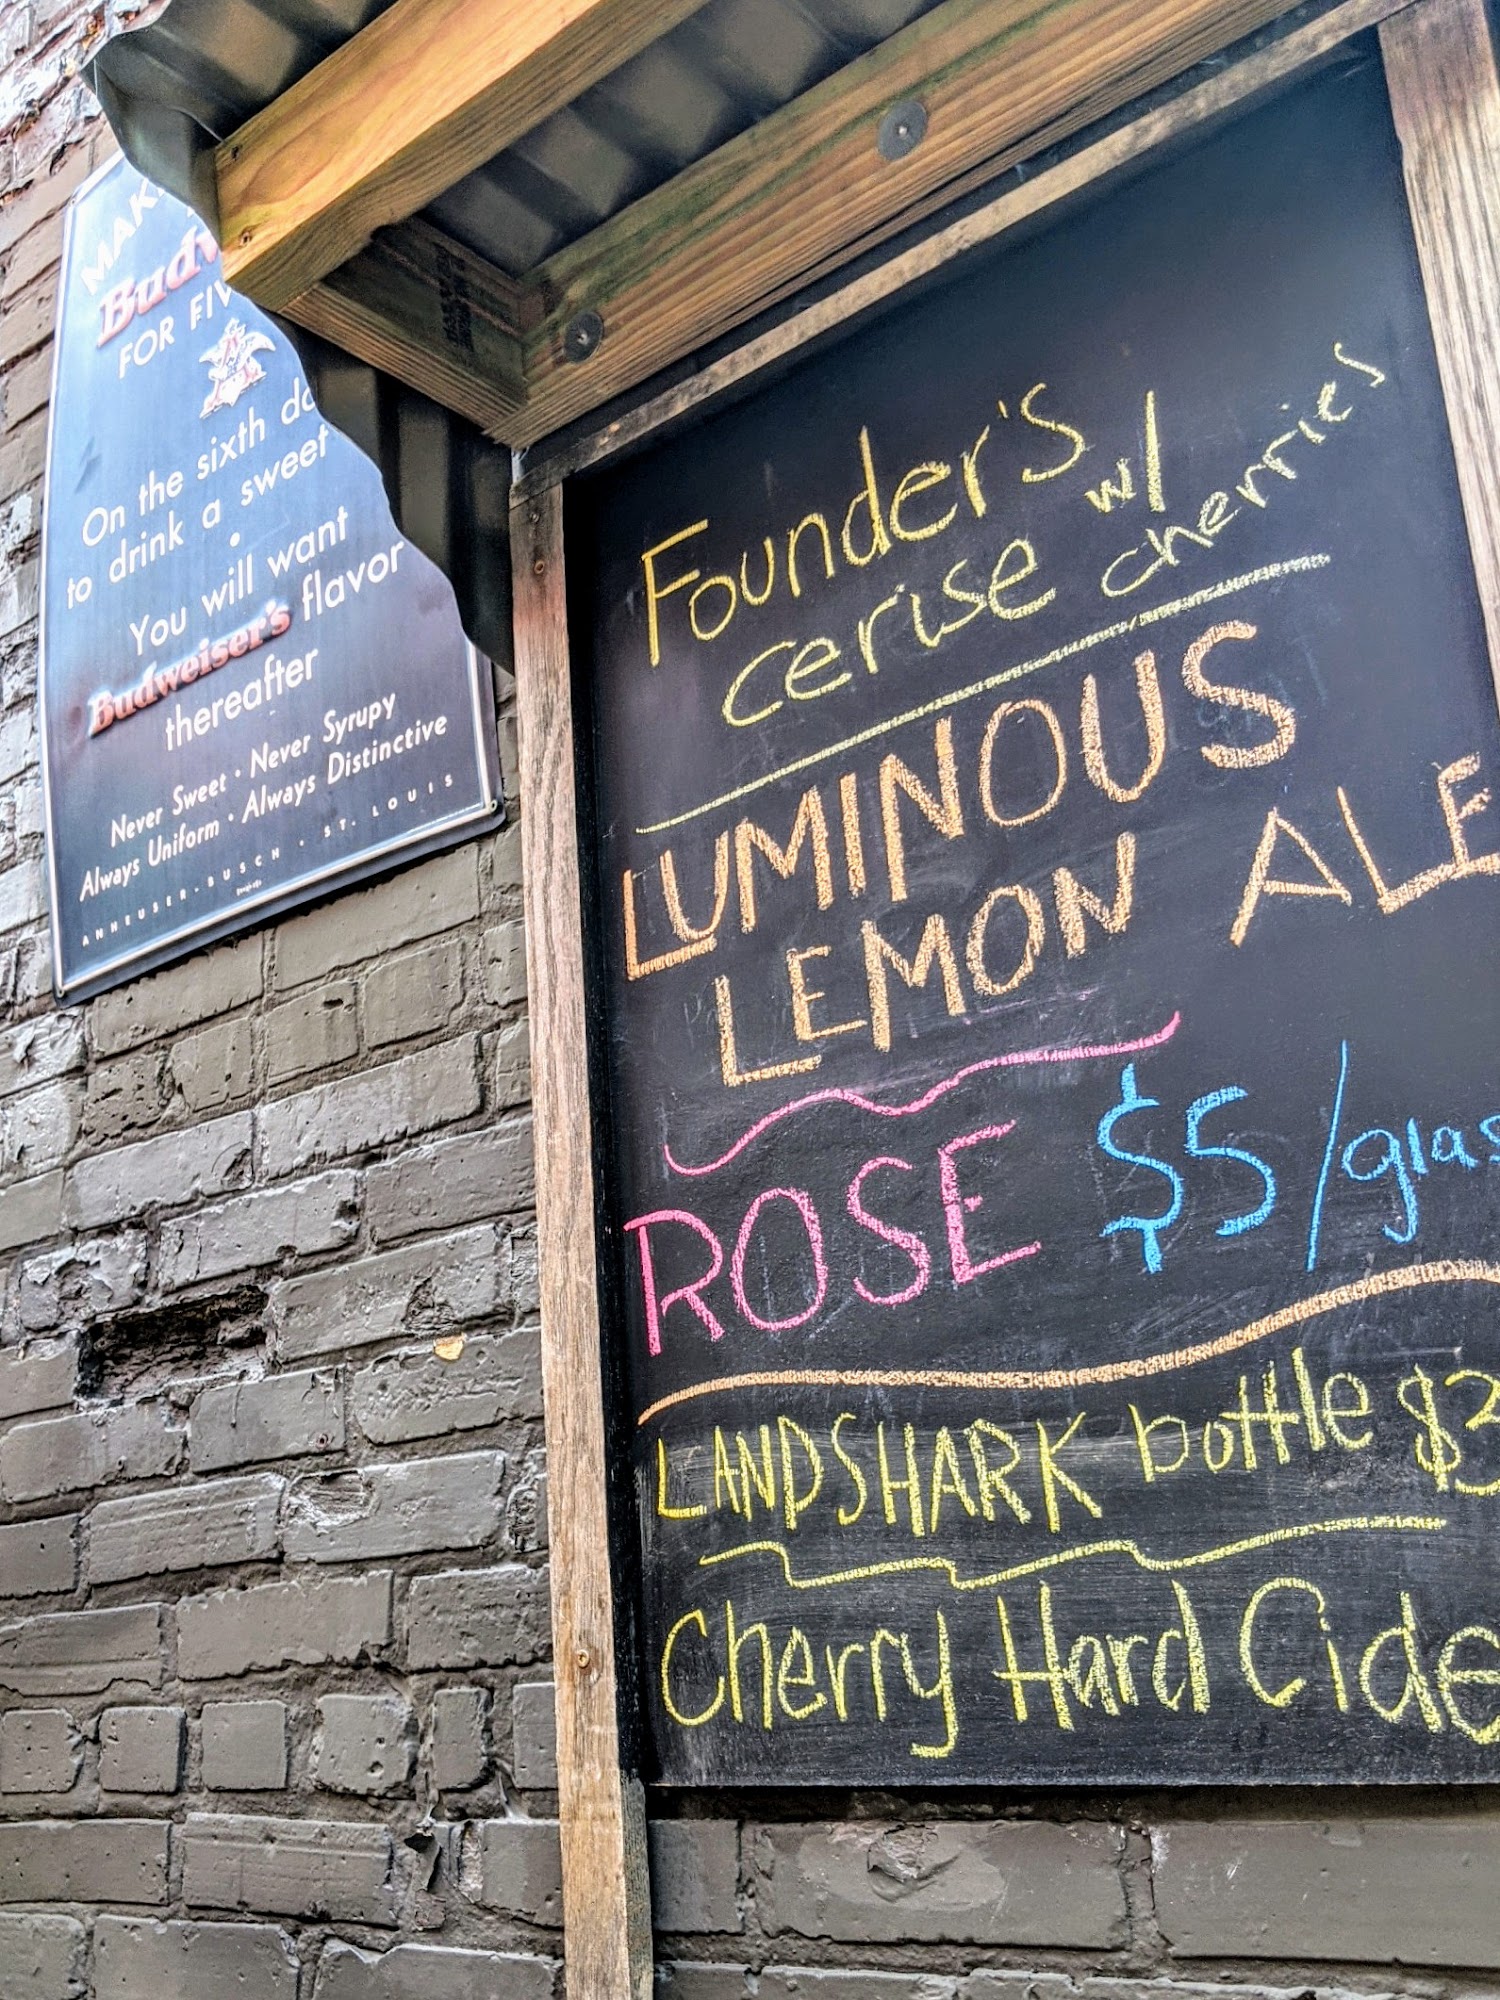 FOR
On the sixth
to drink a sweet
•
You will want
Budweiser's flavor
thereafter
Never Sweet • Never Syrupy
Always Uniform • Always Distinctive
ANHEUSER-BUSCH • ST. LOUIS
Founder's w/
cerise cherries
LUMINOUS
LEMON ALE
ROSE $5/glas
LANDSHARK bottle $3
Cherry Hard Cide